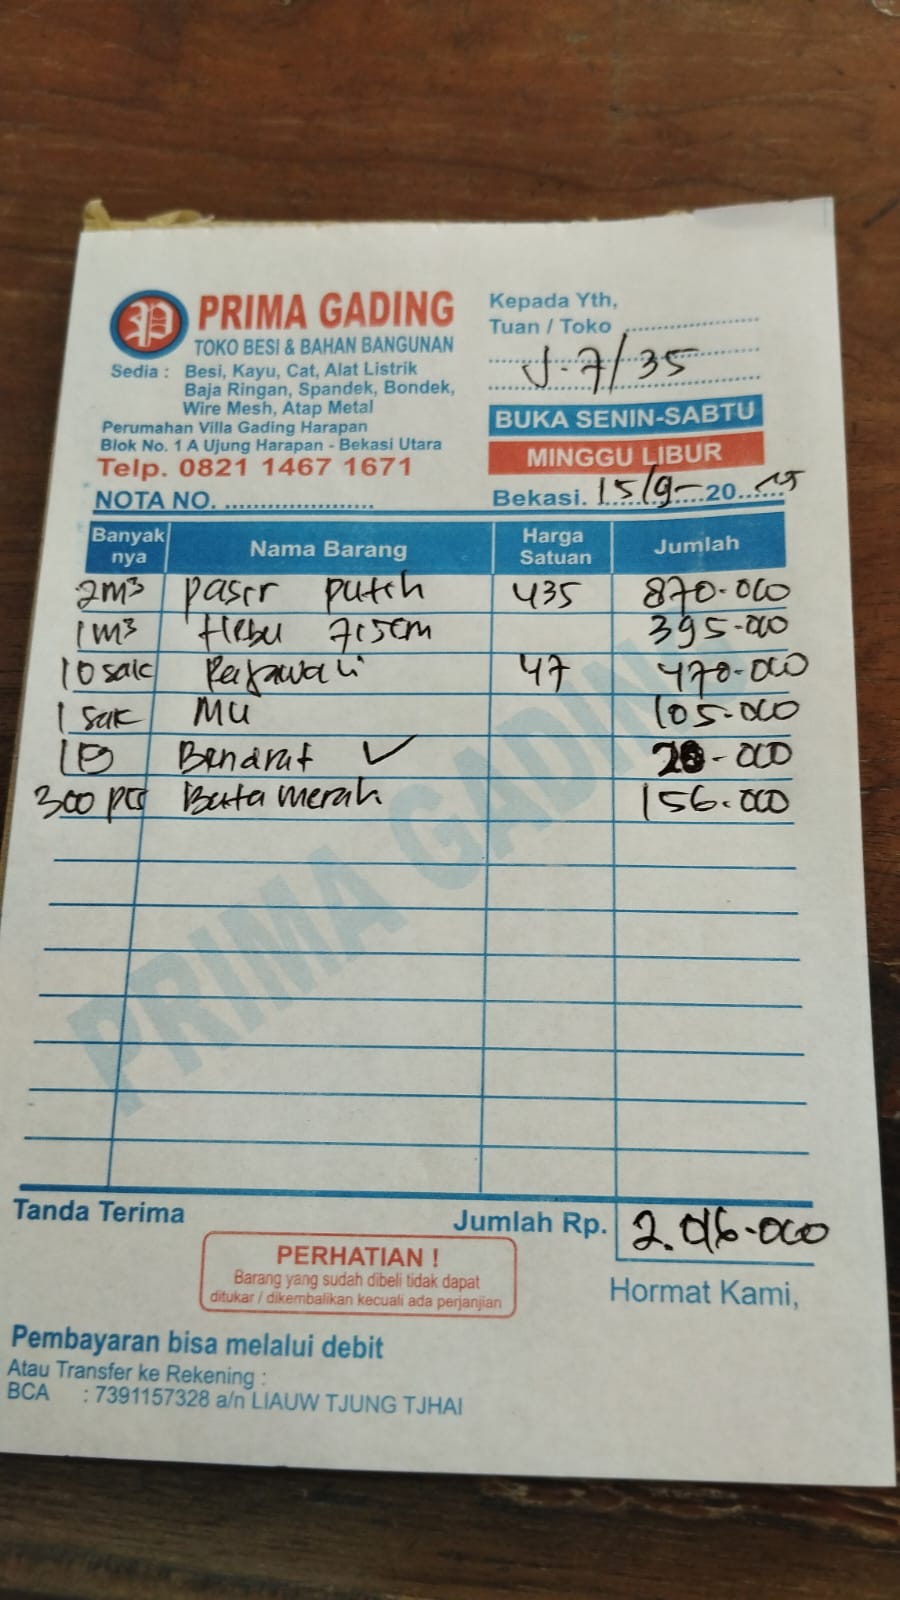 PRIMA GADING
TOKO BESI & BAHAN BANGUNAN
Sedia : Besi, Kayu, Cat, Alat Listrik
Baja Ringan, Spandek, Bondek,
Wire Mesh, Atap Metal
Perumahan Villa Gading Harapan
Blok No. 1 A Ujung Harapan - Bekasi Utara
Telp. 0821 1467 1671
NOTA NO. ....................
Kepada Yth,
Tuan / Toko ....................
J.7/35
BUKA SENIN-SABTU
MINGGU LIBUR
Bekasi. 15/9- 20
Banyak nya Nama Barang Harga Satuan Jumlah
2m³ pasir putih 435 870.000
1m³ 395.000
10 sak Rajawali 47 470.000
1 sak MU 105.000
Bendrat ✓ 20-000
300 pcs Bata merah 156.000
PRIMA GADING
Tanda Terima
Jumlah Rp. 2.016.000
PERHATIAN !
Barang yang sudah dibeli tidak dapat
ditukar / dikembalikan kecuali ada perjanjian
Hormat Kami,
Pembayaran bisa melalui debit
Atau Transfer ke Rekening :
BCA : 7391157328 a/n LIAUW TJUNG TJHAI